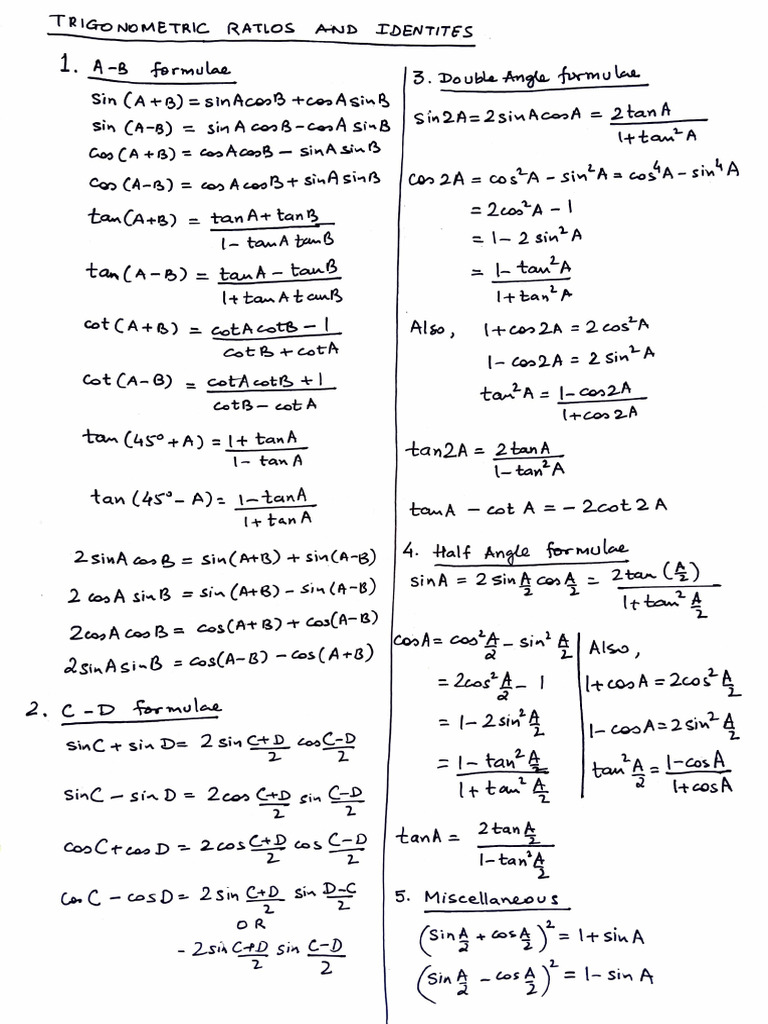 TRIGONOMETRIC RATIOS AND IDENTITES
1. A-B formulae
sin (A+B) = sinAcosB + cosA sinB
sin (A-B) = sinA cosB - cosA sinB
Cos (A+B) = cosAcosB - sinA sinB
cos (A-B) = cosAcosB + sinA sinB
tan (A+B) = (tanA + tanB)/(1 - tanA tanB)
tan (A-B) = (tanA - tanB)/(1 + tanA tanB)
cot (A+B) = (cotAcotB - 1)/(cotB + cotA)
cot (A-B) = (cotAcotB + 1)/(cotB - cotA)
tan (45° + A) = (1 + tanA)/(1 - tanA)
tan (45° - A) = (1 - tanA)/(1 + tanA)
2 sinA cosB = sin(A+B) + sin(A-B)
2 cosA sinB = sin(A+B) - sin(A-B)
2cosA cosB = cos(A+B) + cos(A-B)
2sinA sinB = cos(A-B) - cos(A+B)
2. C-D formulae
sinC + sinD = 2 sin (C+D)/2 cos (C-D)/2
sinC - sinD = 2cos (C+D)/2 sin (C-D)/2
cosC + cosD = 2cos (C+D)/2 cos (C-D)/2
cosC - cosD = 2sin (C+D)/2 sin (D-C)/2
OR
-2sin (C+D)/2 sin (C-D)/2
3. Double Angle formulae
Sin2A = 2sinAcosA = 2tanA/(1+tan²A)
cos2A = cos²A - sin²A = cos⁴A - sin⁴A
= 2cos²A - 1
= 1 - 2 sin²A
= (1 - tan²A)/(1 + tan²A)
Also, 1 + cos2A = 2cos²A
1 - cos2A = 2 sin²A
tan²A = (1 - cos2A)/(1 + cos2A)
tan2A = 2tanA/(1 - tan²A)
tanA - cotA = -2cot2A
4. Half Angle formulae
sinA = 2 sin A/2 cos A/2 = 2tan (A/2)/(1 + tan² A/2)
cosA = cos² A/2 - sin² A/2
= 2cos² A/2 - 1
= 1 - 2sin² A/2
= (1 - tan² A/2)/(1 + tan² A/2)
Also,
1 + cosA = 2cos² A/2
1 - cosA = 2sin² A/2
tan² A/2 = (1 - cosA)/(1 + cosA)
tanA = 2tan A/2/(1 - tan² A/2)
5. Miscellaneous
(sin A/2 + cos A/2)² = 1 + sinA
(sin A/2 - cos A/2)² = 1 - sinA